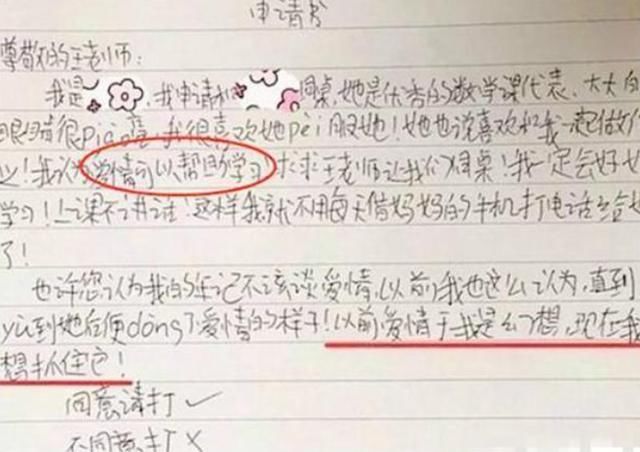 申请书
尊敬的王老师:
我是 ,我申请和 同桌,她是优秀的数学课代表、大大的
眼睛很piào亮,我很喜欢她pèi服她!她也说喜欢和我一起做作
业!我认为爱情可以帮助学习 求求王老师让我们同桌!我一定会好好
学习!上课不讲话!这样我就不用每天借妈妈的手机打电话给
了!
也许您认为我的年记不该谈爱情,以前我也这么认为,直到
yù到她后便dǒng了爱情的样子!以前爱情于我是幻想,现在我
想抓住它!
同意请打✓
不同意打✗